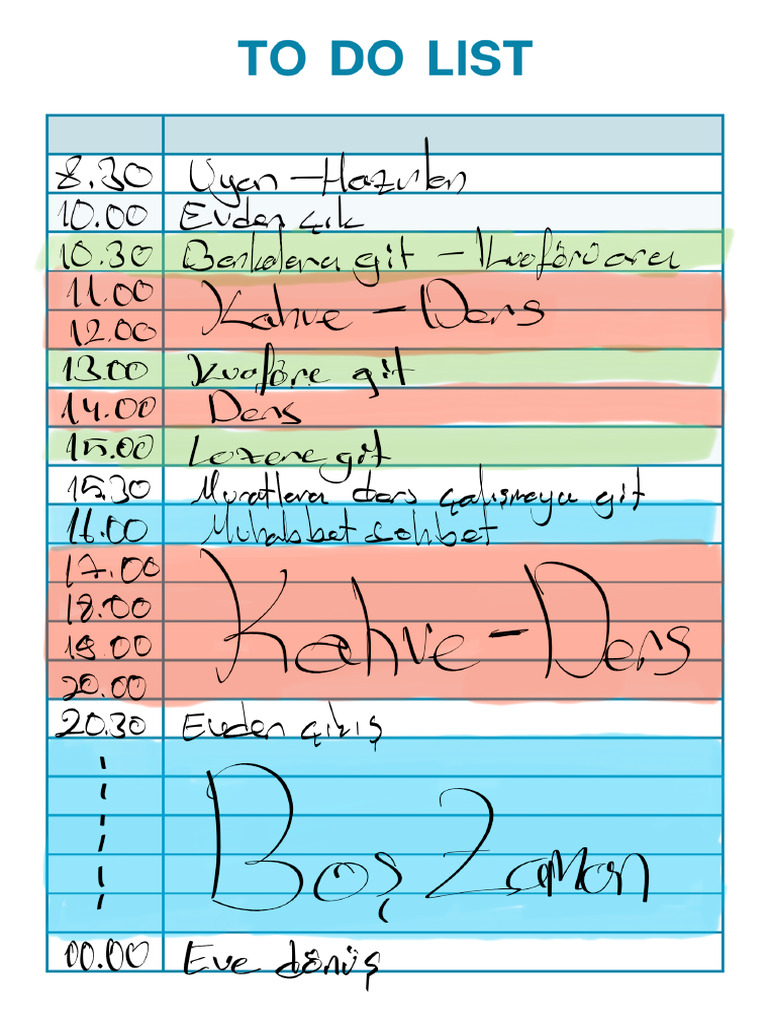 TO DO LIST
8.30 Uyan - Hazırlan
10.00 Evden çık
10.30 Bankalara git - Kuaförü ara
11.00 Kahve - Ders
12.00
13.00 Kuaföre git
14.00 Ders
15.00 Lazere git
15.30 Muratlara ders çalışmaya git
16.00 Muhabbet sohbet
17.00
18.00 Kahve - Ders
19.00
20.00
20.30 Evden çıkış
Boş Zaman
00.00 Eve dönüş